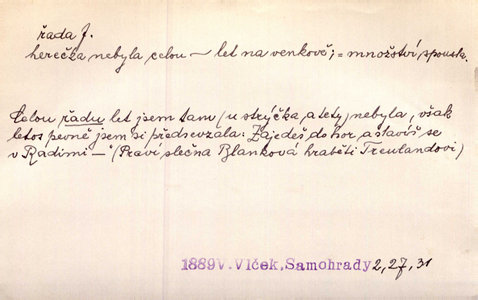 řada f.
herečka nebyla celou — let na venkově; = množství, spousta.
Celou řadu let jsem tam (u strýčka, a tety) nebyla, však
letos pevně jsem si předsevzala: Zajedeš do hor, a stavíš se
v Radimi —" (Praví slečna Blanková hraběti Treulandovi)
1889 V. Vlček, Samohrady 2, 27, 31